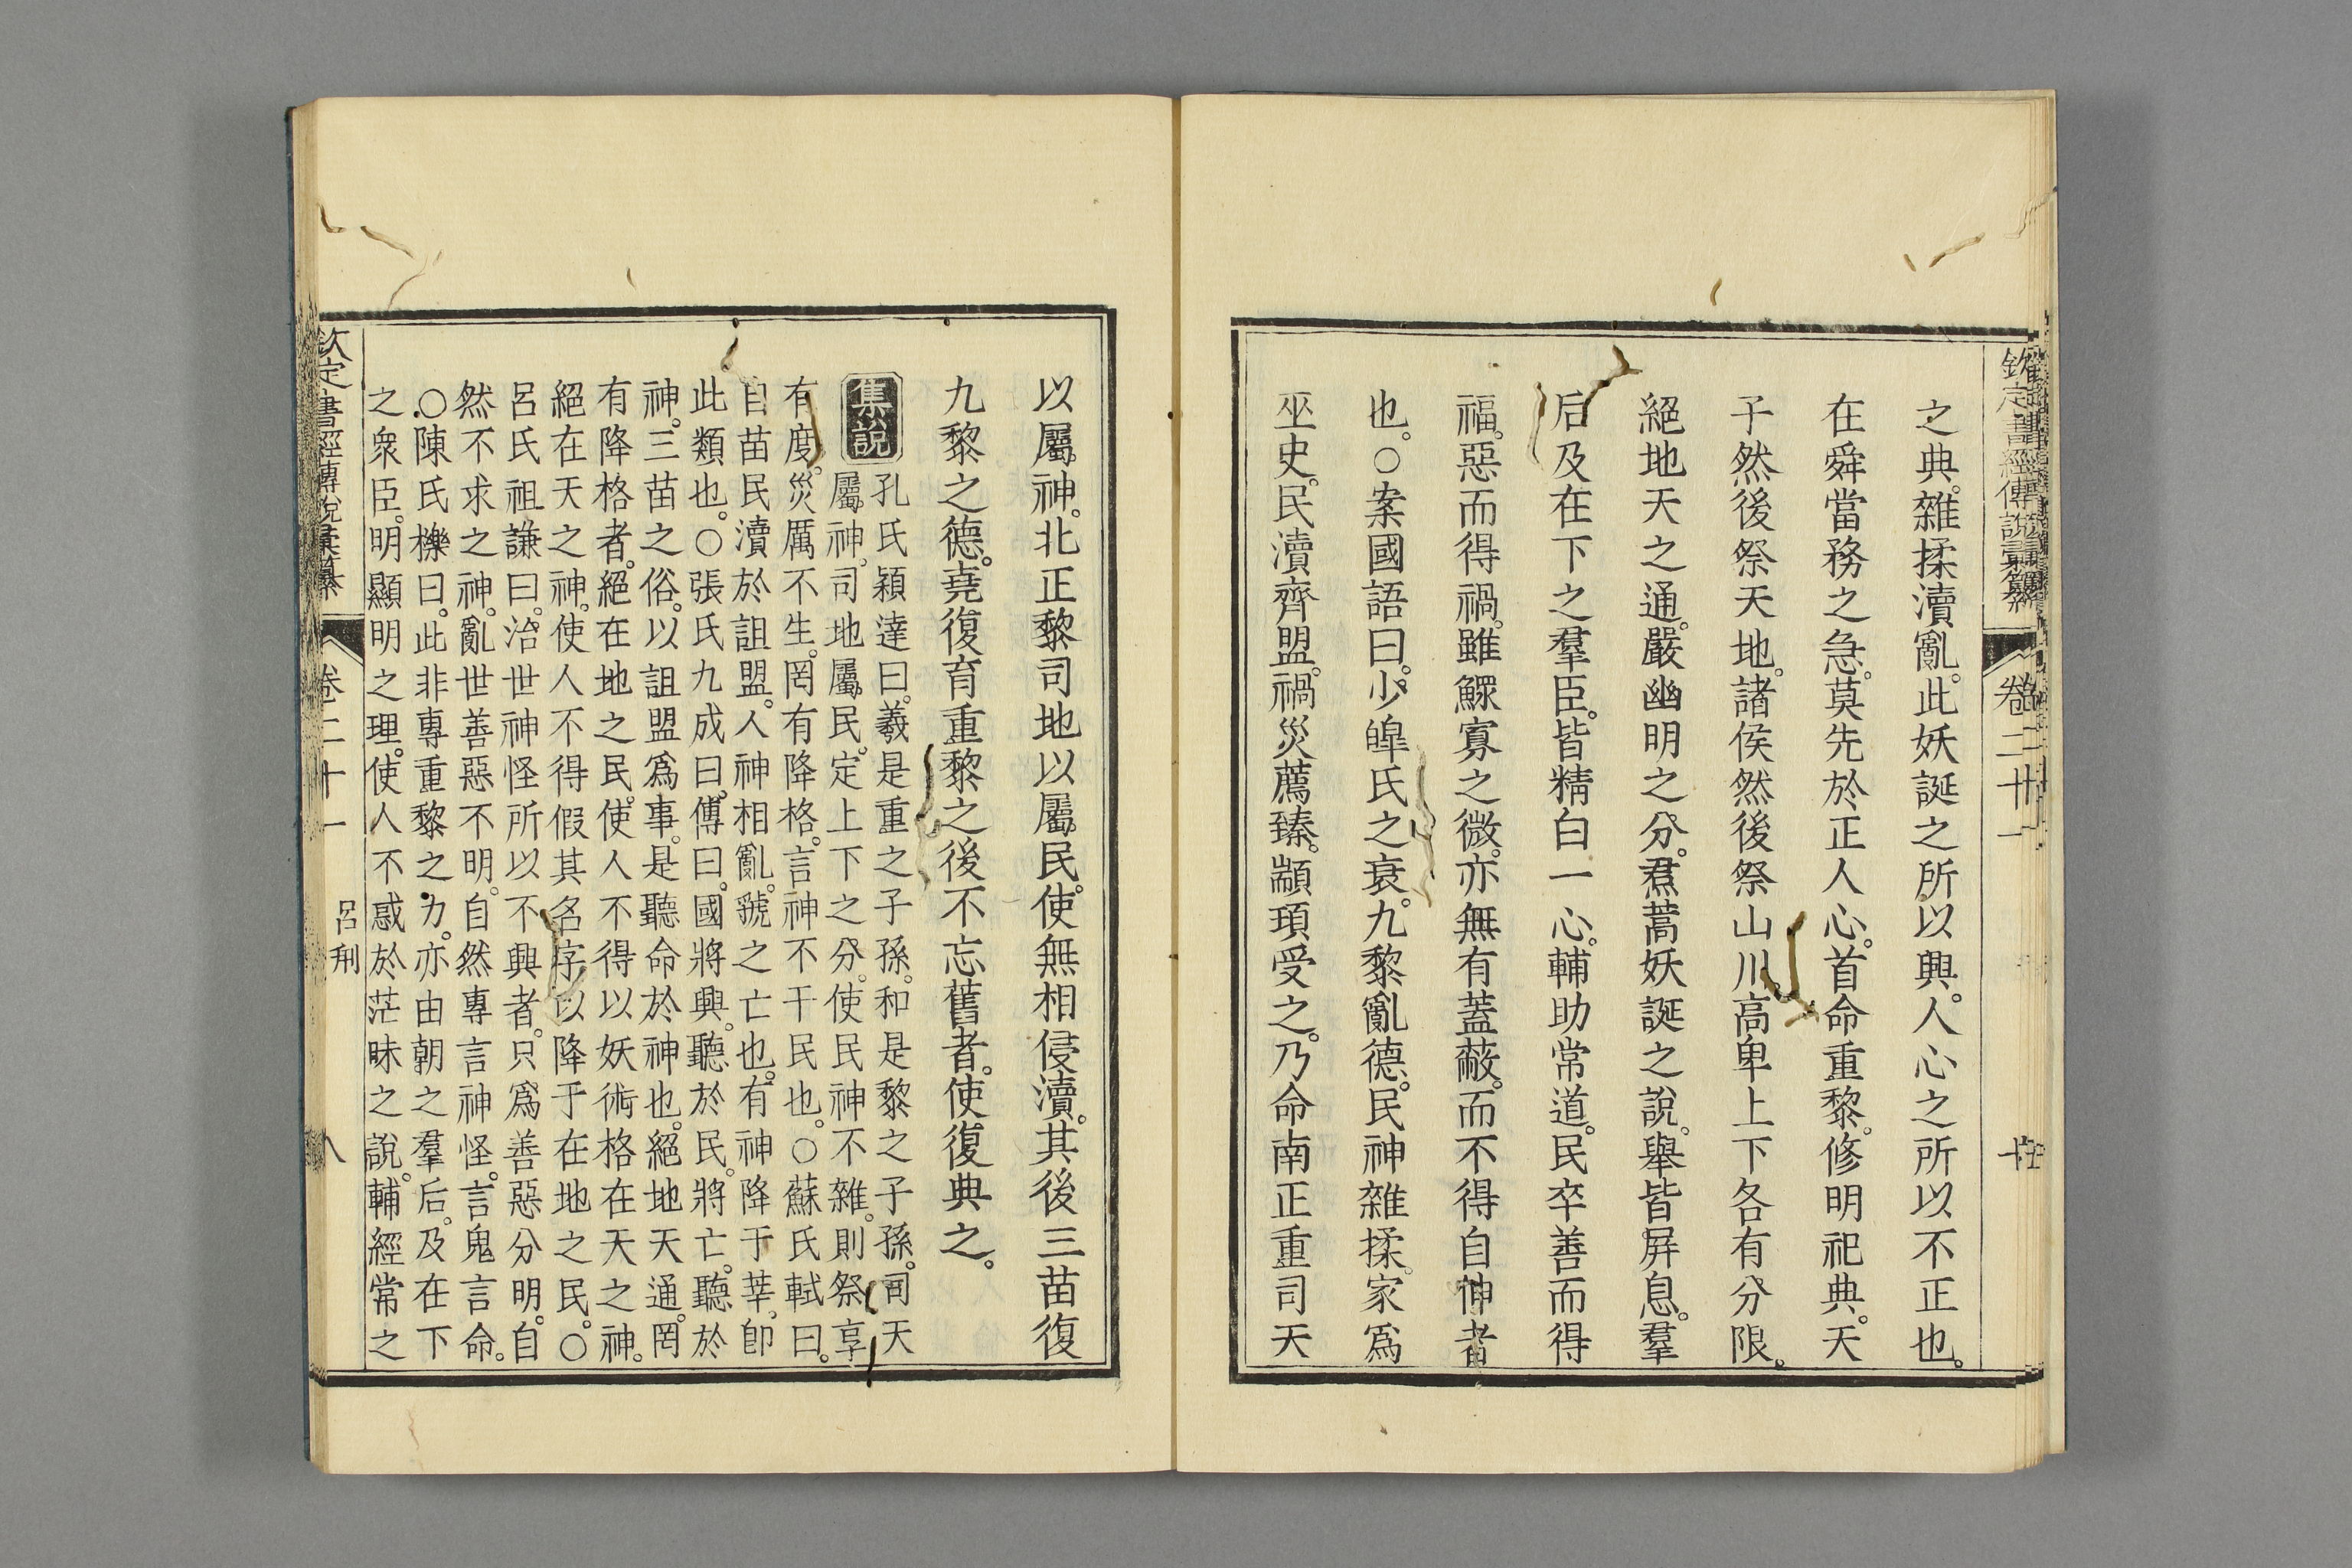 之典。雜揉瀆亂。此妖誕之所以興。人心之所以不正也。
在舜當務之急。莫先於正人心。首命重黎。修明祀典。天
子然後祭天地。諸侯然後祭山川。高卑上下各有分限。
絕地天之通。嚴幽明之分。焄蒿妖誕之說。舉皆屏息。羣
后及在下之羣臣。皆精白一心。輔助常道。民卒善而得
福。惡而得禍。雖鰥寡之微。亦無有蓋蔽。而不得自伸者
也。○案國語曰。少皥氏之衰。九黎亂德。民神雜揉。家爲
巫史。民瀆齊盟。禍災薦臻。顓頊受之。乃命南正重司天
以屬神。北正黎司地以屬民。使無相侵瀆。其後三苗復
九黎之德。堯復育重黎之後不忘舊者。使復典之。
集說
孔氏穎達曰。羲是重之子孫。和是黎之子孫。司天
屬神。司地屬民。定上下之分。使民神不雜。則祭享
有度。災厲不生。罔有降格。言神不干民也。○蘇氏軾曰。
自苗民瀆於詛盟。人神相亂。虢之亡也。有神降于莘。卽
此類也。○張氏九成曰。傳曰。國將興。聽於民。將亡。聽於
神。三苗之俗。以詛盟爲事。是聽命於神也。絕地天通。罔
有降格者。絕在地之民。使人不得以妖術格在天之神。
絕在天之神。使人不得假其名字以降于在地之民。○
呂氏祖謙曰。治世神怪所以不興者。只爲善惡分明。自
然不求之神。亂世善惡不明。自然專言神怪。言鬼言命。
○陳氏櫟曰。此非專重黎之力。亦由朝之羣后。及在下
之衆臣。明顯明之理。使人不惑於茫昧之說。輔經常之
欽定書經傳說彙纂
卷二十一
呂刑
八